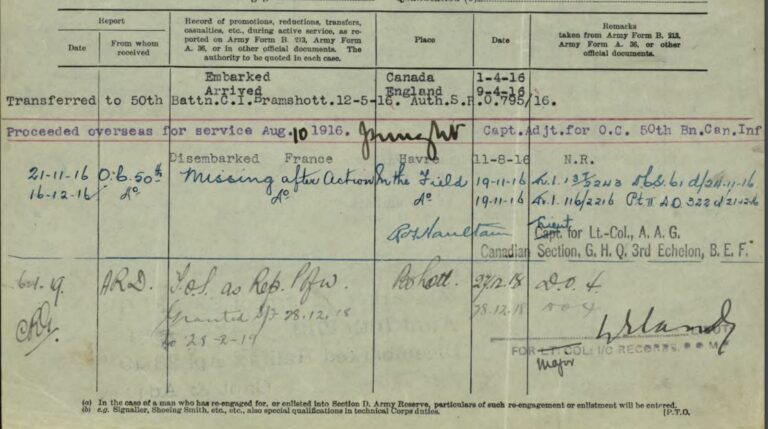 Report
Record of promotions, reductions, transfers, casualties, etc., during active service, as reported on Army Form B. 213, Army Form A. 36, or in other official documents. The authority to be quoted in each case.
Place
Date
Remarks
taken from Army Form B. 213, Army Form A. 36, or other official documents.
Date
From whom received
Embarked Canada 1-4-16
Arrived England 9-4-16
Transferred to 50th Battn.C.I.Bramshott.12-5-16. Auth.S.R.0.795/16.
Proceeded overseas for service Aug.10 1916. Capt.Adjt.for O.C. 50th Bn.Can.Inf
Disembarked France Havre 11-8-16 N.R.
21-11-16 O.C. 50th Missing after Action In the Field 19-11-16
16-12-16 do do do 19-11-16
Capt. for Lt.-Col., A. A. G.
Canadian Section, G. H. Q. 3rd Echelon, B. E. F.
ARD. T.O.S. as Rep. P of W. 27.12.18 D.O. 4
Granted 28.12.18 28.12.18 D.O 4
to 28-2-19
FOR LT. COL. I/C RECORDS
Major
(a) In the case of a man who has re-engaged for, or enlisted into Section D. Army Reserve, particulars of such re-engagement or enlistment will be entered.
(b) e.g. Signaller, Shoeing Smith, etc., etc., also special qualifications in technical Corps duties.
[P.T.O.